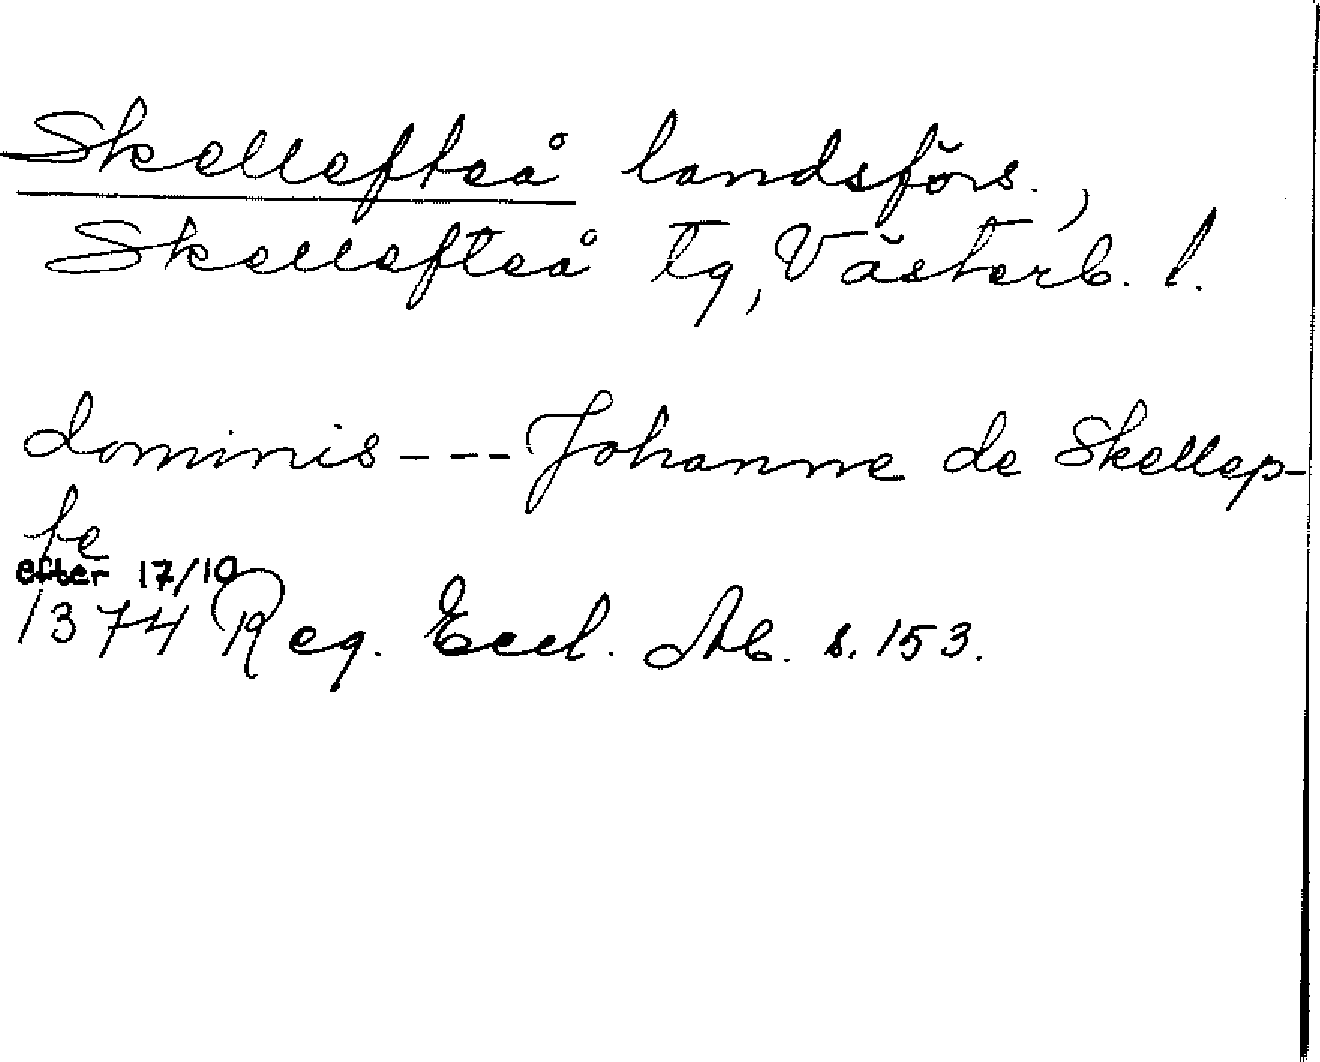 Skellefteå landsförs.,
Skellefteå tg, Västerb. l.
dominis --- Johanne de Skellep-
te
efter 17/10
1374 Reg. Eccl. Ab. s. 153.